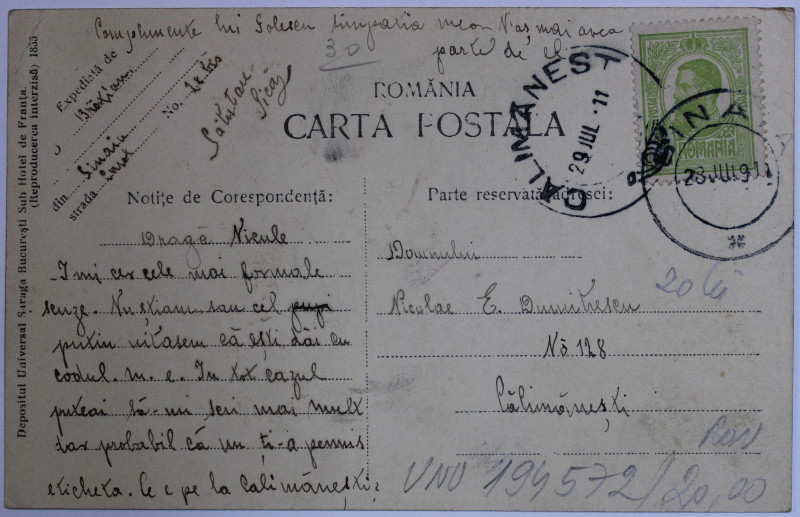 Complimente lui Golescu simpatia mea N'aș mai avea
parte de el
30
Expediată de
Brătianu
No. 12 bis
din Sinaia
strada
ROMÂNIA
CARTA POSTALA
CALIMANESTI
29 IUL. 11
SINAIA
28 IUL 911
ROMANIA
Depositul Universal Saraga Bucureștĭ Sub Hotel de Franța.
(Reproducerea interzisă) 1855
Notițe de Corespondență:
Dragă Nicule
Imi cer cele mai formale
scuze. Nu știam sau cel
puțin uitasem că ești dăi cu
codul. m. e. In tot cazul
puteai să-mi scri mai mult
dar probabil că nu ți-a permis
eticheta. Ce e pe la Calimănești?
Parte reservată adresei:
Domnului
Nicolae E. Dumitrescu
No 128
Călimănești
20 lei
VNU 194572/20,00